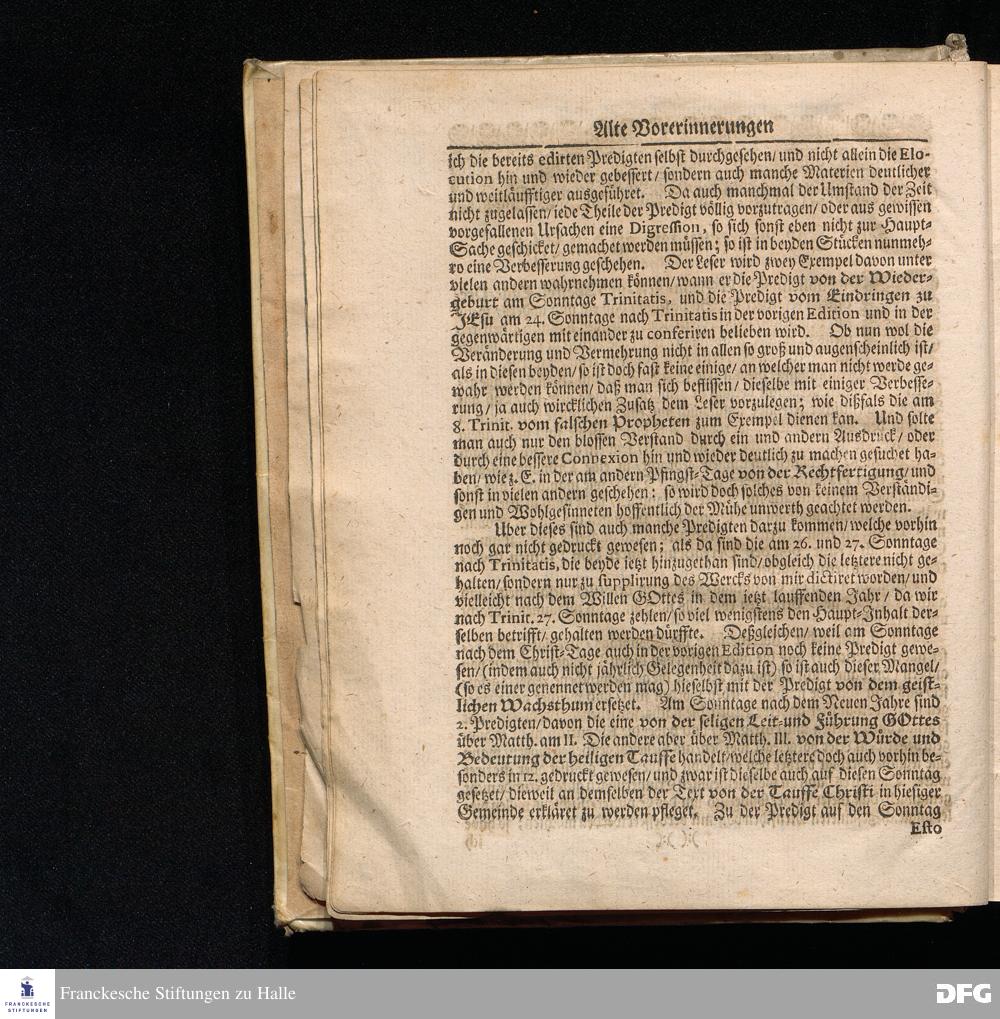 Alte Vorerinnerungen
ich die bereits edirten Predigten selbst durchgesehen/ und nicht allein die Elo-
cution hin und wieder gebessert/ sondern auch manche Materien deutlicher
und weitläufftiger ausgeführet. Da auch manchmal der Umstand der Zeit
nicht zugelassen/ iede Theile der Predigt völlig vorzutragen/ oder aus gewissen
vorgefallenen Ursachen eine Digression, so sich sonst eben nicht zur Haupt-
Sache geschicket/ gemachet werden müssen; so ist in beyden Stücken nunmeh-
ro eine Verbesserung geschehen. Der Leser wird zwey Exempel davon unter
vielen andern wahrnehmen können/ wann er die Predigt von der Wieder-
geburt am Sonntage Trinitatis, und die Predigt vom Eindringen zu
JEsu am 24. Sonntage nach Trinitatis in der vorigen Edition und in der
gegenwärtigen mit einander zu conferiren belieben wird. Ob nun wol die
Veränderung und Vermehrung nicht in allen so groß und augenscheinlich ist/
als in diesen beyden/ so ist doch fast keine einige/ an welcher man nicht werde ge-
wahr werden können/ daß man sich beflissen/ dieselbe mit einiger Verbesse-
rung/ ja auch wircklichen Zusatz dem Leser vorzulegen; wie dißfals die am
8. Trinit. vom falschen Propheten zum Exempel dienen kan. Und solte
man auch nur den blossen Verstand durch ein und andern Ausdruck/ oder
durch eine bessere Connexion hin und wieder deutlich zu machen gesuchet ha-
ben/ wie z. E. in der am andern Pfingst-Tage von der Rechtfertigung/ und
sonst in vielen andern geschehen: so wird doch solches von keinem Verständi-
gen und Wohlgesinneten hoffentlich der Mühe unwerth geachtet werden.
Uber dieses sind auch manche Predigten darzu kommen/ welche vorhin
noch gar nicht gedruckt gewesen; als da sind die am 26. und 27. Sonntage
nach Trinitatis, die beyde ietzt hinzugethan sind/ obgleich die letztere nicht ge-
halten/ sondern nur zu supplirung des Wercks von mir dictiret worden/ und
vielleicht nach dem Willen GOttes in dem ietzt lauffenden Jahr/ da wir
nach Trinit. 27. Sonntage zehlen/ so viel wenigstens den Haupt-Inhalt der-
selben betrifft/ gehalten werden dürffte. Deßgleichen/ weil am Sonntage
nach dem Christ-Tage auch in der vorigen Edition noch keine Predigt gewe-
sen/ (indem auch nicht jährlich Gelegenheit dazu ist) so ist auch dieser Mangel/
(so es einer genennet werden mag) hieselbst mit der Predigt von dem geist-
lichen Wachsthum ersetzet. Am Sonntage nach dem Neuen Jahre sind
2. Predigten/ davon die eine von der seligen Leit-und Führung GOttes
über Matth. am II. Die andere aber über Matth. III. von der Würde und
Bedeutung der heiligen Tauffe handelt/ welche letztere doch auch vorhin be-
sonders in 12. gedruckt gewesen/ und zwar ist dieselbe auch auf diesen Sonntag
gesetzet/ dieweil an demselben der Text von der Tauffe Christi in hiesiger
Gemeinde erkläret zu werden pfleget. Zu der Predigt auf den Sonntag
Esto
FRANCKESCHE
STIFTUNGEN
Franckesche Stiftungen zu Halle
DFG